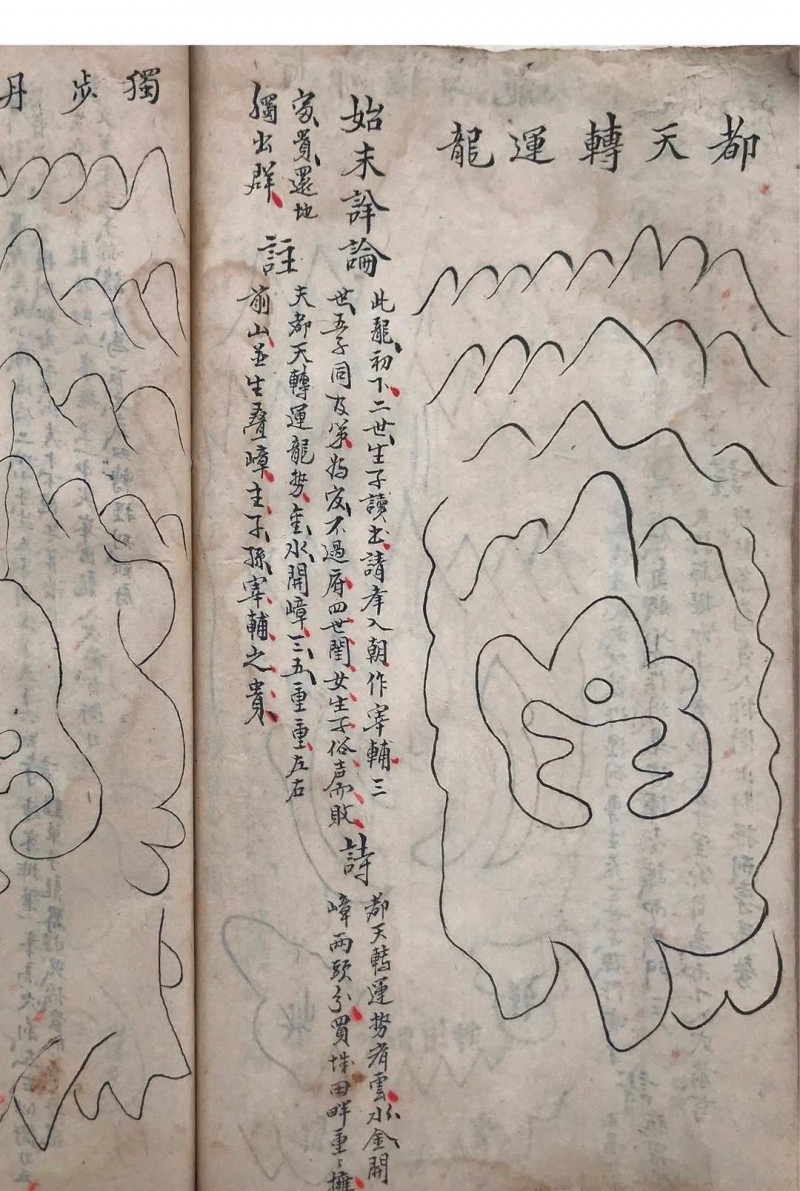 都天轉運龍
始末詳論
此龍初下二世生子讀出請孝入朝作宰輔三
世五子同不過府四世閨女生子俗声而敗
詩
都天轉運勢有雲水金開
嶂兩頭分買城田畔重〻擁
家貴還地
獨出群
註
夫都天轉運龍勢金水開嶂三五重重左右
前山並生疊嶂主子孫宰輔之貴
獨步丹